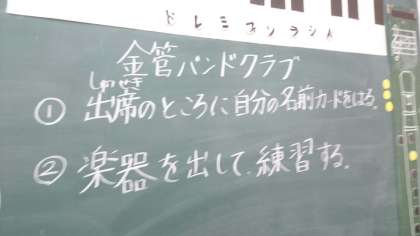 ドレミファソラシド
金管バンドクラブ
しゅっせき
① 出席のところに自分の名前カードをはる。
② 楽器を出して、練習する。